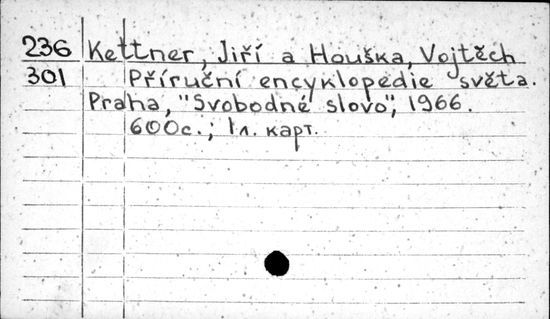 236 Kettner, Jiří a Houška, Vojtěch
301 Příruční encyklopedie světa.
Praha, "Svobodné slovo", 1966.
600с.; 1л. карт.